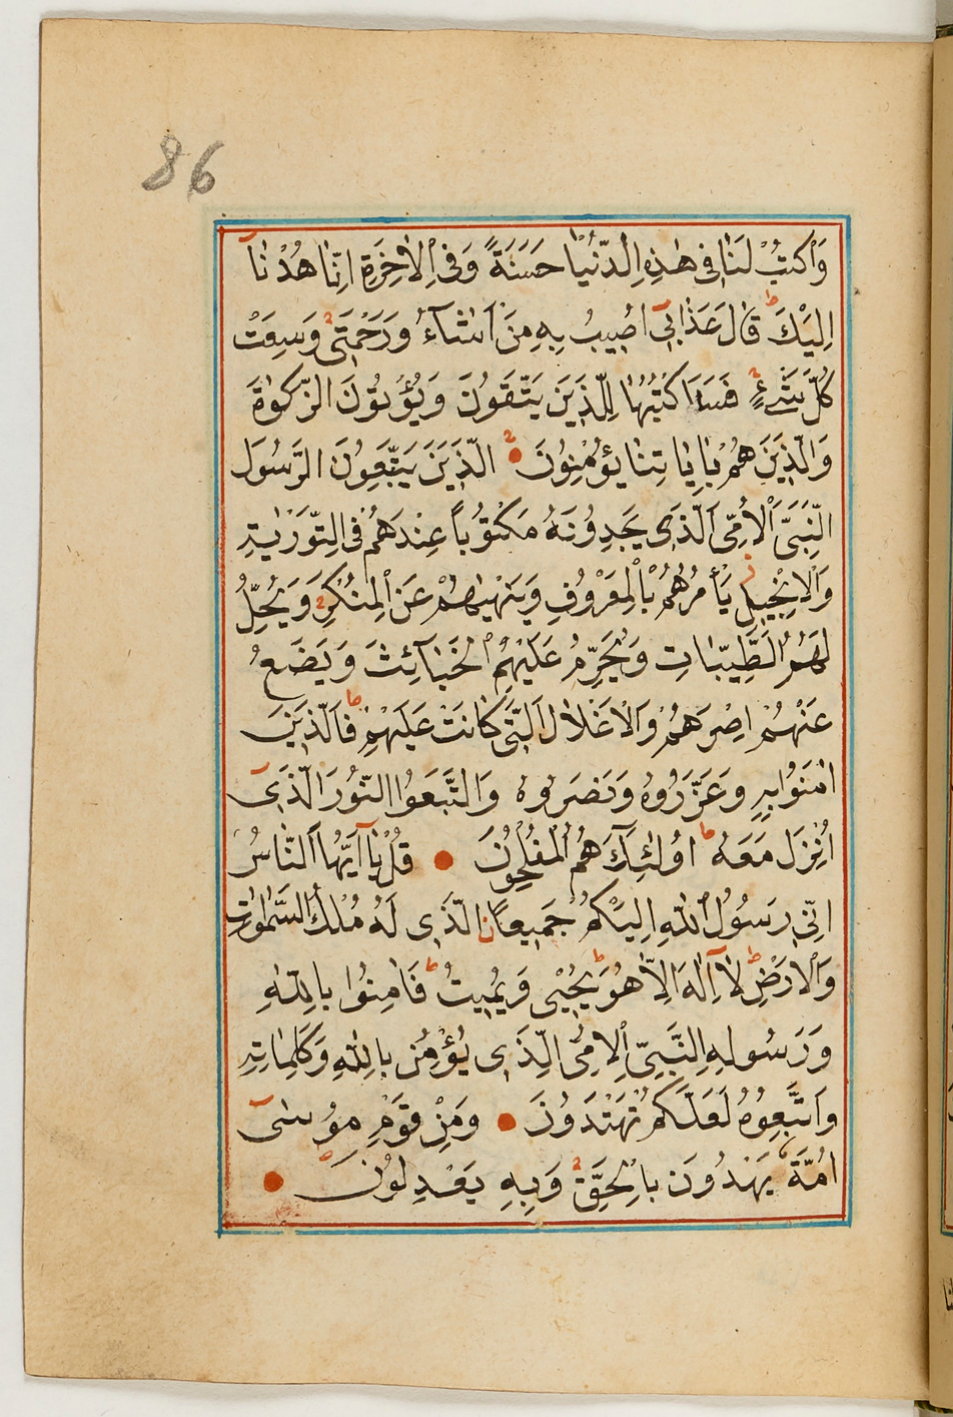 86
وَاكْتُبْ لَنَا فِى هٰذِهِ الدُّنْيَا حَسَنَةً وَفِى الْاٰخِرَةِ اِنَّا هُدْنَا
اِلَيْكَ ط قَالَ عَذَابِى اُصِيبُ بِهِ مَنْ اَشَاءُ وَرَحْمَتِى وَسِعَتْ
كُلَّ شَىْءٍ فَسَاَكْتُبُهَا لِلَّذِينَ يَتَّقُونَ وَيُؤْتُونَ الزَّكٰوةَ
وَالَّذِينَ هُمْ بِاٰيَاتِنَا يُؤْمِنُونَ اَلَّذِينَ يَتَّبِعُونَ الرَّسُولَ
النَّبِىَّ الْاُمِّىَّ الَّذِى يَجِدُونَهُ مَكْتُوبًا عِنْدَهُمْ فِى التَّوْرٰيةِ
وَالْاِنْجِيلِ يَأْمُرُهُمْ بِالْمَعْرُوفِ وَيَنْهٰيهُمْ عَنِ الْمُنْكَرِ وَيُحِلُّ
لَهُمُ الطَّيِّبَاتِ وَيُحَرِّمُ عَلَيْهِمُ الْخَبَائِثَ وَيَضَعُ
عَنْهُمْ اِصْرَهُمْ وَالْاَغْلَالَ الَّتِى كَانَتْ عَلَيْهِمْ ط فَالَّذِينَ
اٰمَنُوا بِهِ وَعَزَّرُوهُ وَنَصَرُوهُ وَاتَّبَعُوا النُّورَ الَّذِى
اُنْزِلَ مَعَهُ ط اُولٰئِكَ هُمُ الْمُفْلِحُونَ قُلْ يَا اَيُّهَا النَّاسُ
اِنِّى رَسُولُ اللّٰهِ اِلَيْكُمْ جَمِيعًا ن الَّذِى لَهُ مُلْكُ السَّمٰوَاتِ
وَالْاَرْضِ ط لَا اِلٰهَ اِلَّا هُوَ يُحْيِى وَيُمِيتُ ط فَاٰمِنُوا بِاللّٰهِ
وَرَسُولِهِ النَّبِىِّ الْاُمِّىِّ الَّذِى يُؤْمِنُ بِاللّٰهِ وَكَلِمَاتِهِ
وَاتَّبِعُوهُ لَعَلَّكُمْ تَهْتَدُونَ وَمِنْ قَوْمِ مُوسٰى
اُمَّةٌ يَهْدُونَ بِالْحَقِّ وَبِهِ يَعْدِلُونَ